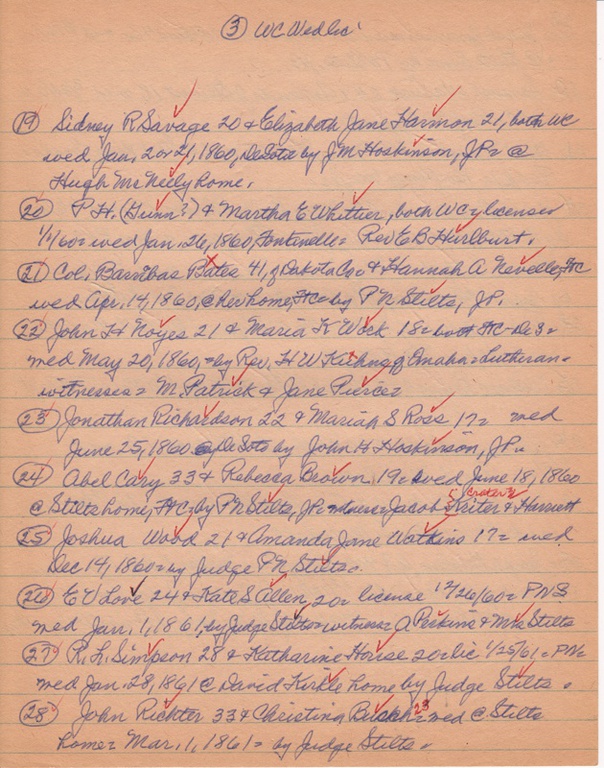 ③ WC Weds
⑲ Sidney R Savage 20 & Elizabeth Jane Harmon 21, both WC
wed Jan. 2 or 21, 1860, DeSoto by J M Hoskinson, JP= @
Hugh McNeely home.
⑳ P. H. (Gunn?) & Martha E Whittier, both WC= license
1/1/60= wed Jan. 26, 1860, Fontinelle= Rev E B Hurlburt.
㉑ Col. Barnibas Bates 41, of Dakota Co= & Hannah A Neville, FtC
wed Apr. 14, 1860, @ Rev home, FtC= by P N Stilts, JP.
㉒ John H Noyes 21 & Maria K Wock 18= both FtC=
wed May 20, 1860,= by Rev. H W Kuhns of Omaha= Lutheran=
witnesses= M. Patrick & Jane Pierce=
㉓ Jonathan Richardson 22 & Mariah S Ross 17= wed
June 25, 1860 DeSoto by John H Hoskinson, JP=
㉔ Abel Cary 33 & Rebecca Brown 19= wed June 18, 1860
@ Stilts home, FtC= by P N Stilts, JP= witness= Jacob Kriter & Harriett
㉕ Joshua Wood 21 & Amanda Jane Watkins 17= wed
Dec 14, 1860= by Judge P N Stilts=
㉖ E V Love 24 & Kate S Allen 20= license 12/26/60= PNS
wed Jan. 1, 1861, by Judge Stilts= witness= A Perkins & Mrs Stilts
㉗ R. L. Simpson 28 & Katharine House 20= lic 1/25/61= PN=
wed Jan. 28, 1861 @ David Kirkle home by Judge Stilts=
㉘ John Richter 33 & Christina 23= wed @ Stilts
home= Mar. 1, 1861= by Judge Stilts=